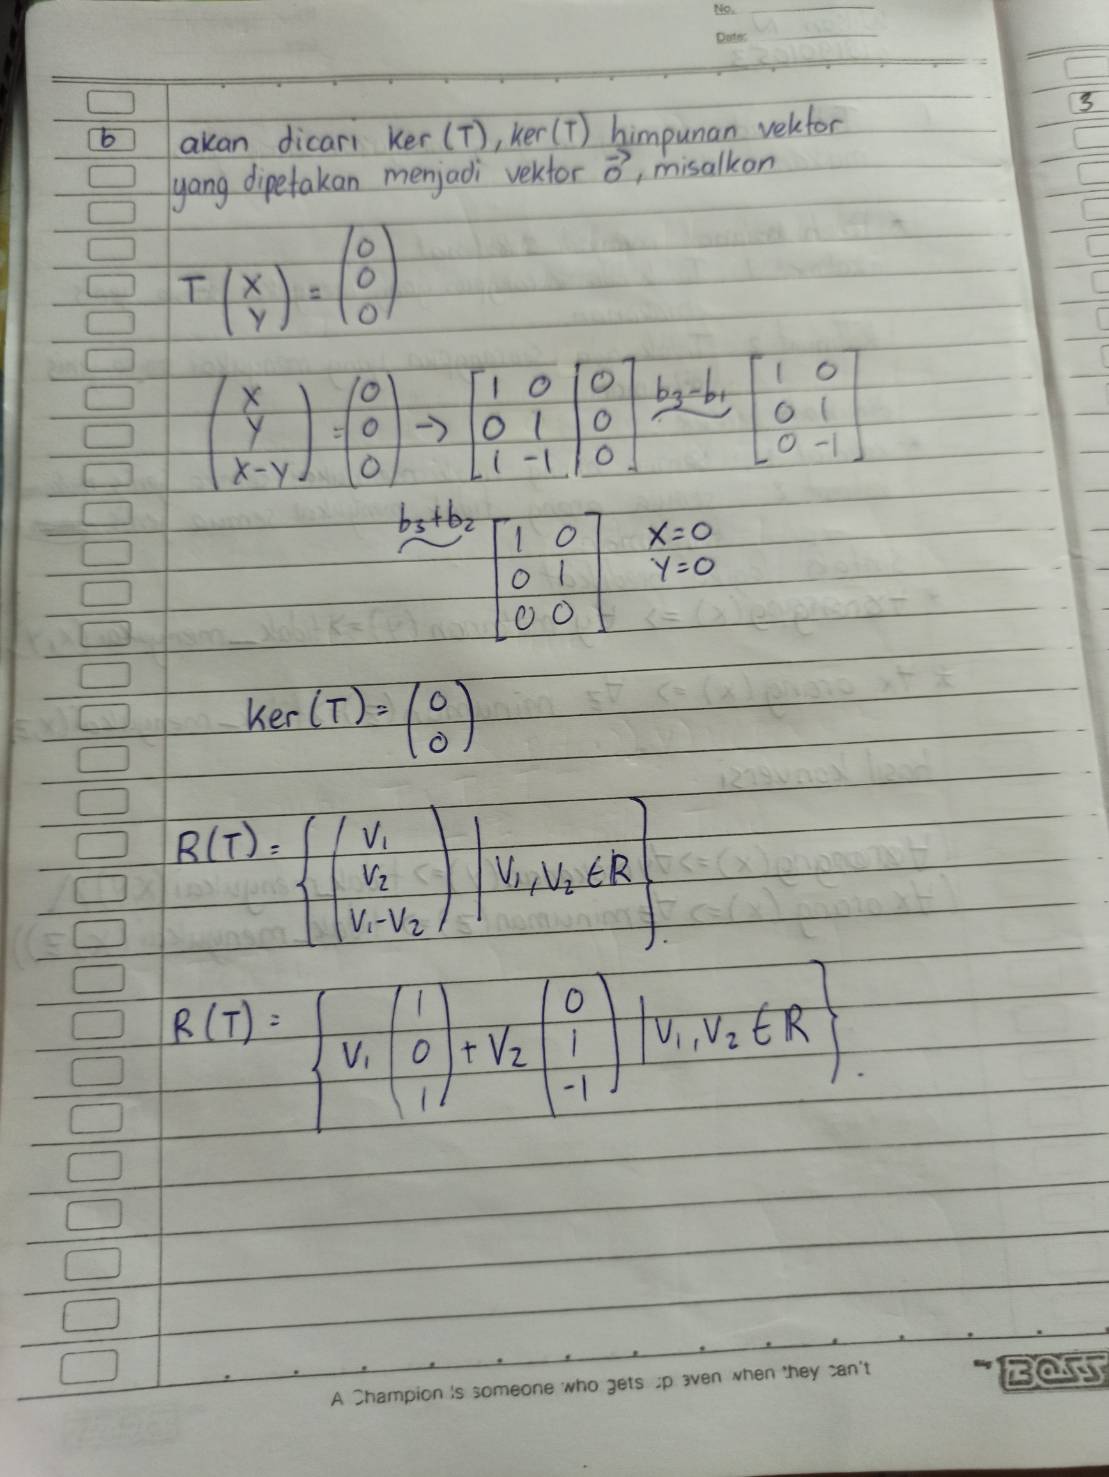 No.
Date:
3
b akan dicari Ker (T), Ker(T) himpunan vektor
yang dipetakan menjadi vektor \vec{0}, misalkan
T \begin{pmatrix} x \\ y \end{pmatrix} = \begin{pmatrix} 0 \\ 0 \\ 0 \end{pmatrix}
\begin{pmatrix} x \\ y \\ x-y \end{pmatrix} = \begin{pmatrix} 0 \\ 0 \\ 0 \end{pmatrix} → \left[\begin{array}{cc|c} 1 & 0 & 0 \\ 0 & 1 & 0 \\ 1 & -1 & 0 \end{array}\right] b₃-b₁ \begin{bmatrix} 1 & 0 \\ 0 & 1 \\ 0 & -1 \end{bmatrix}
b₃+b₂ \begin{bmatrix} 1 & 0 \\ 0 & 1 \\ 0 & 0 \end{bmatrix} x=0 y=0
Ker(T) = \begin{pmatrix} 0 \\ 0 \end{pmatrix}
R(T) = \left\{ \begin{pmatrix} V₁ \\ V₂ \\ V₁-V₂ \end{pmatrix} | V₁, V₂ ∈ R \right\}.
R(T) = \left\{ V₁ \begin{pmatrix} 1 \\ 0 \\ 1 \end{pmatrix} + V₂ \begin{pmatrix} 0 \\ 1 \\ -1 \end{pmatrix} | V₁, V₂ ∈ R \right\}.
A Champion is someone who gets up even when they can't
BOSS